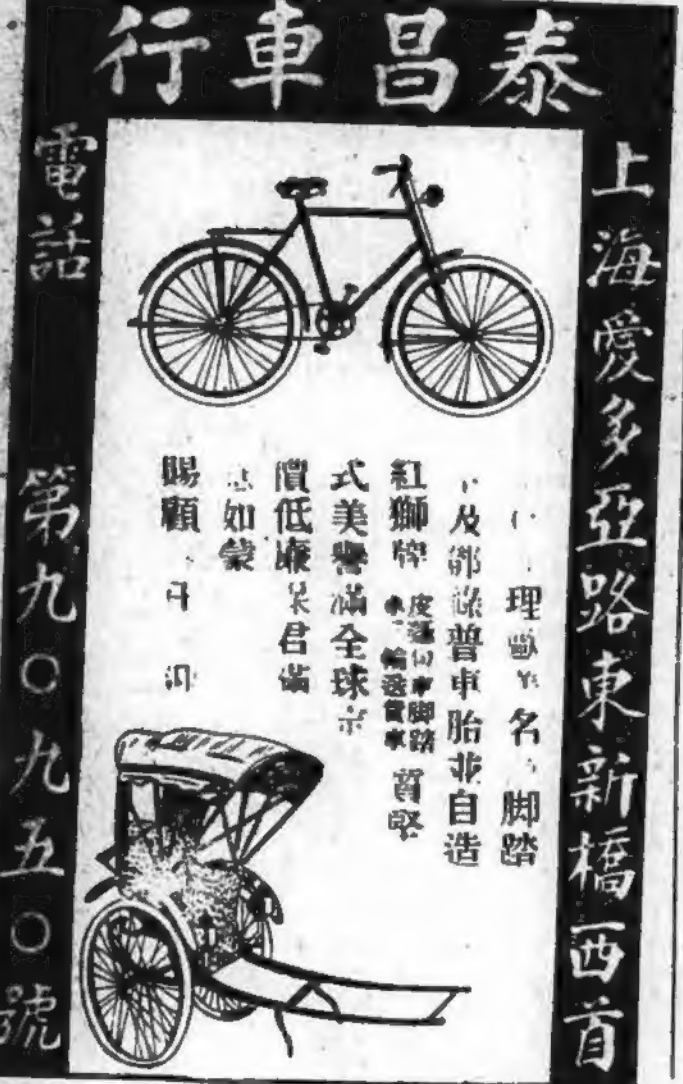 泰昌車行
上海愛多亞路東新橋西首
理名腳踏
及鄧祿普車胎並自造
紅獅牌
皮包車腳踏
車三輪送貨車
質堅
式美譽滿全球
價低廉君滿
如蒙
賜顧
電話 第九〇九五〇號